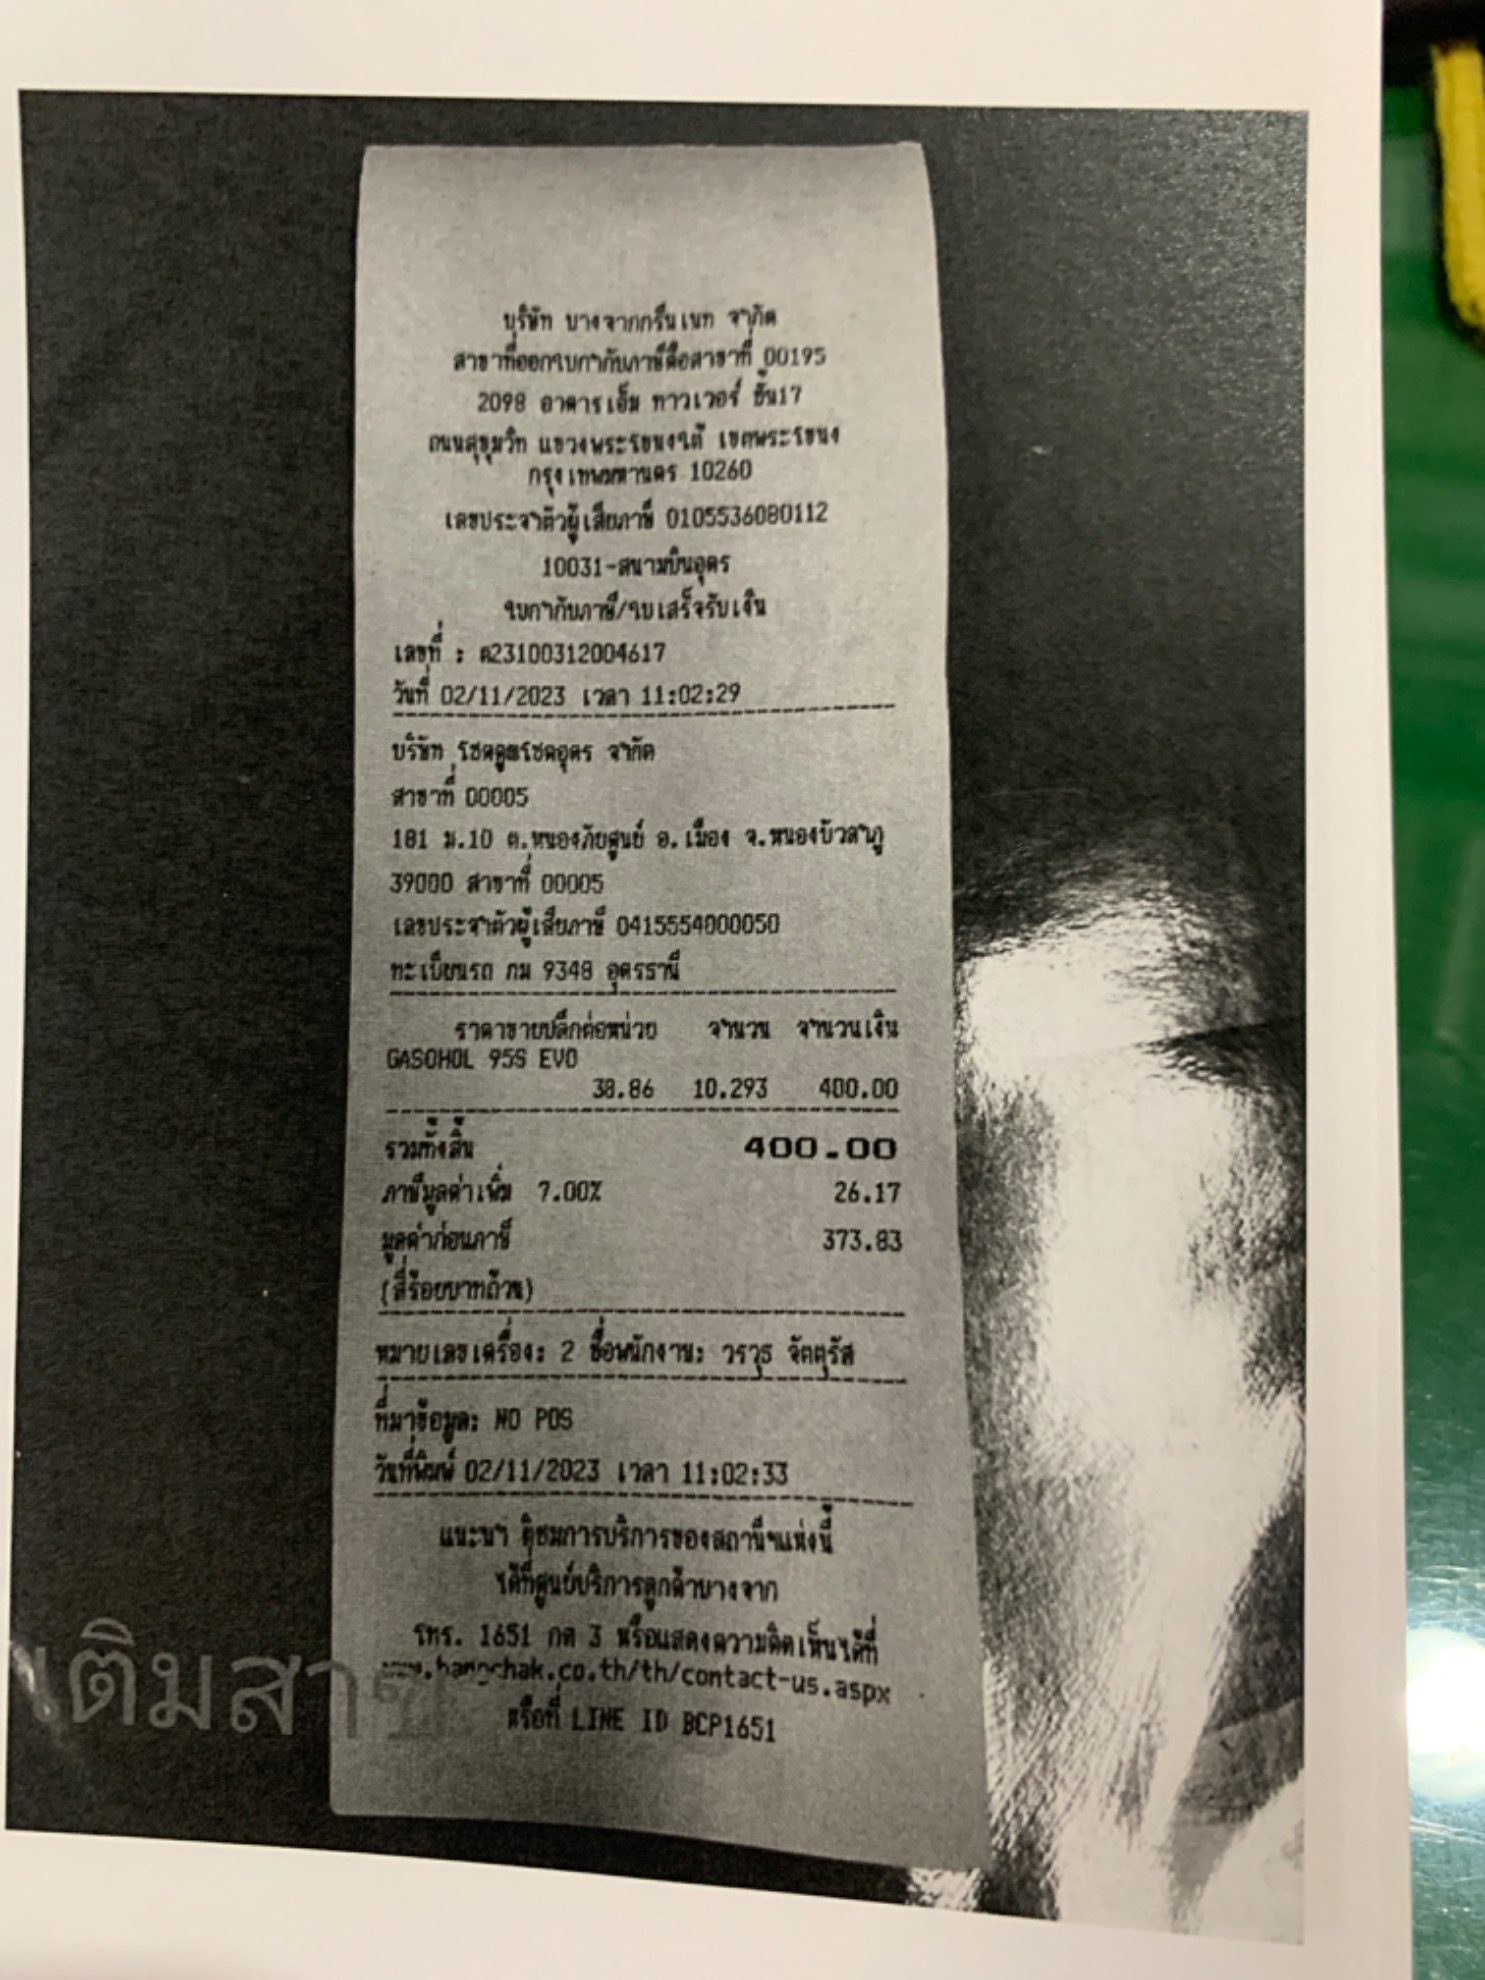 บริษัท บางจากกรีนเนท จำกัด
สาขาที่ออกใบกำกับภาษีคือสาขาที่ 00195
2098 อาคารเอ็ม ทาวเวอร์ ชั้น17
ถนนสุขุมวิท แขวงพระโขนงใต้ เขตพระโขนง
กรุงเทพมหานคร 10260
เลขประจำตัวผู้เสียภาษี 0105536080112
10031-สนามบินอุดร
ใบกำกับภาษี/ใบเสร็จรับเงิน
เลขที่ : ด23100312004617
วันที่ 02/11/2023 เวลา 11:02:29
บริษัท โชคคูณโชคอุดร จำกัด
สาขาที่ 00005
181 ม.10 ต.หนองภัยศูนย์ อ.เมือง จ.หนองบัวลำภู
39000 สาขาที่ 00005
เลขประจำตัวผู้เสียภาษี 0415554000050
ทะเบียนรถ กม 9348 อุดรธานี
ราคาขายปลีกต่อหน่วย จำนวน จำนวนเงิน
GASOHOL 95S EVO
38.86 10.293 400.00
รวมทั้งสิ้น 400.00
ภาษีมูลค่าเพิ่ม 7.00% 26.17
มูลค่าก่อนภาษี 373.83
(สี่ร้อยบาทถ้วน)
หมายเลขเครื่อง: 2 ชื่อพนักงาน: วรวุธ จัตตุรัส
ที่มาข้อมูล: NO POS
วันที่พิมพ์ 02/11/2023 เวลา 11:02:33
แนะนำ ติชมการบริการของสถานีฯแห่งนี้
ได้ที่ศูนย์บริการลูกค้าบางจาก
โทร. 1651 กด 3 หรือแสดงความคิดเห็นได้ที่
www.bangchak.co.th/th/contact-us.aspx
หรือที่ LINE ID BCP1651
เติมสาร